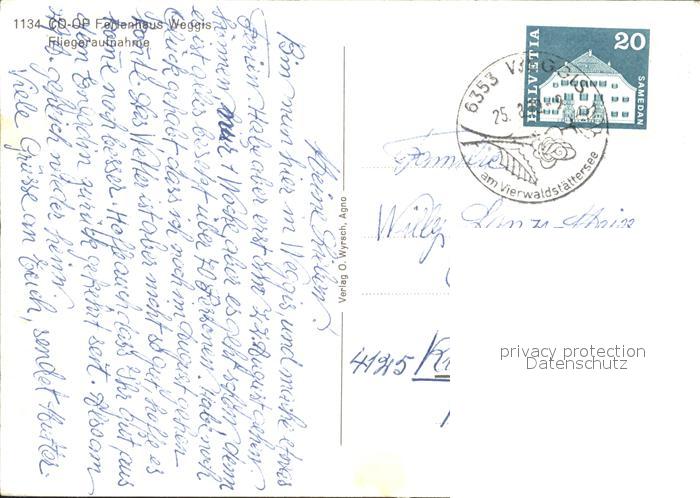 1134 CO-OP Ferienhaus Weggis
Fliegeraufnahme
Meine Lieben!
Bin nun hier in Weggis und mache etwas
Ferien. Habe aber erst am 22. August ein
nur 1 Woche aber es geht schon, denn
es ist alles besetzt über 70 Personen. Habe noch
Glück gehabt, dass ich noch im August gehen
konnte. das Wetter ist aber nicht so gut, hoffe es
komme noch besser. Hoffe auch dass Ihr gut aus
dem Engadin zurück gekehrt seit.
gleich wieder heim
Viele Grüsse an Euch, sendet Mutter.
Verlag O. Wyrsch, Agno
HELVETIA
20
SAMEDAN
6353 WEGGIS
25. 8.
am Vierwaldstättersee
Familie
Willy
4125
privacy protection
Datenschutz